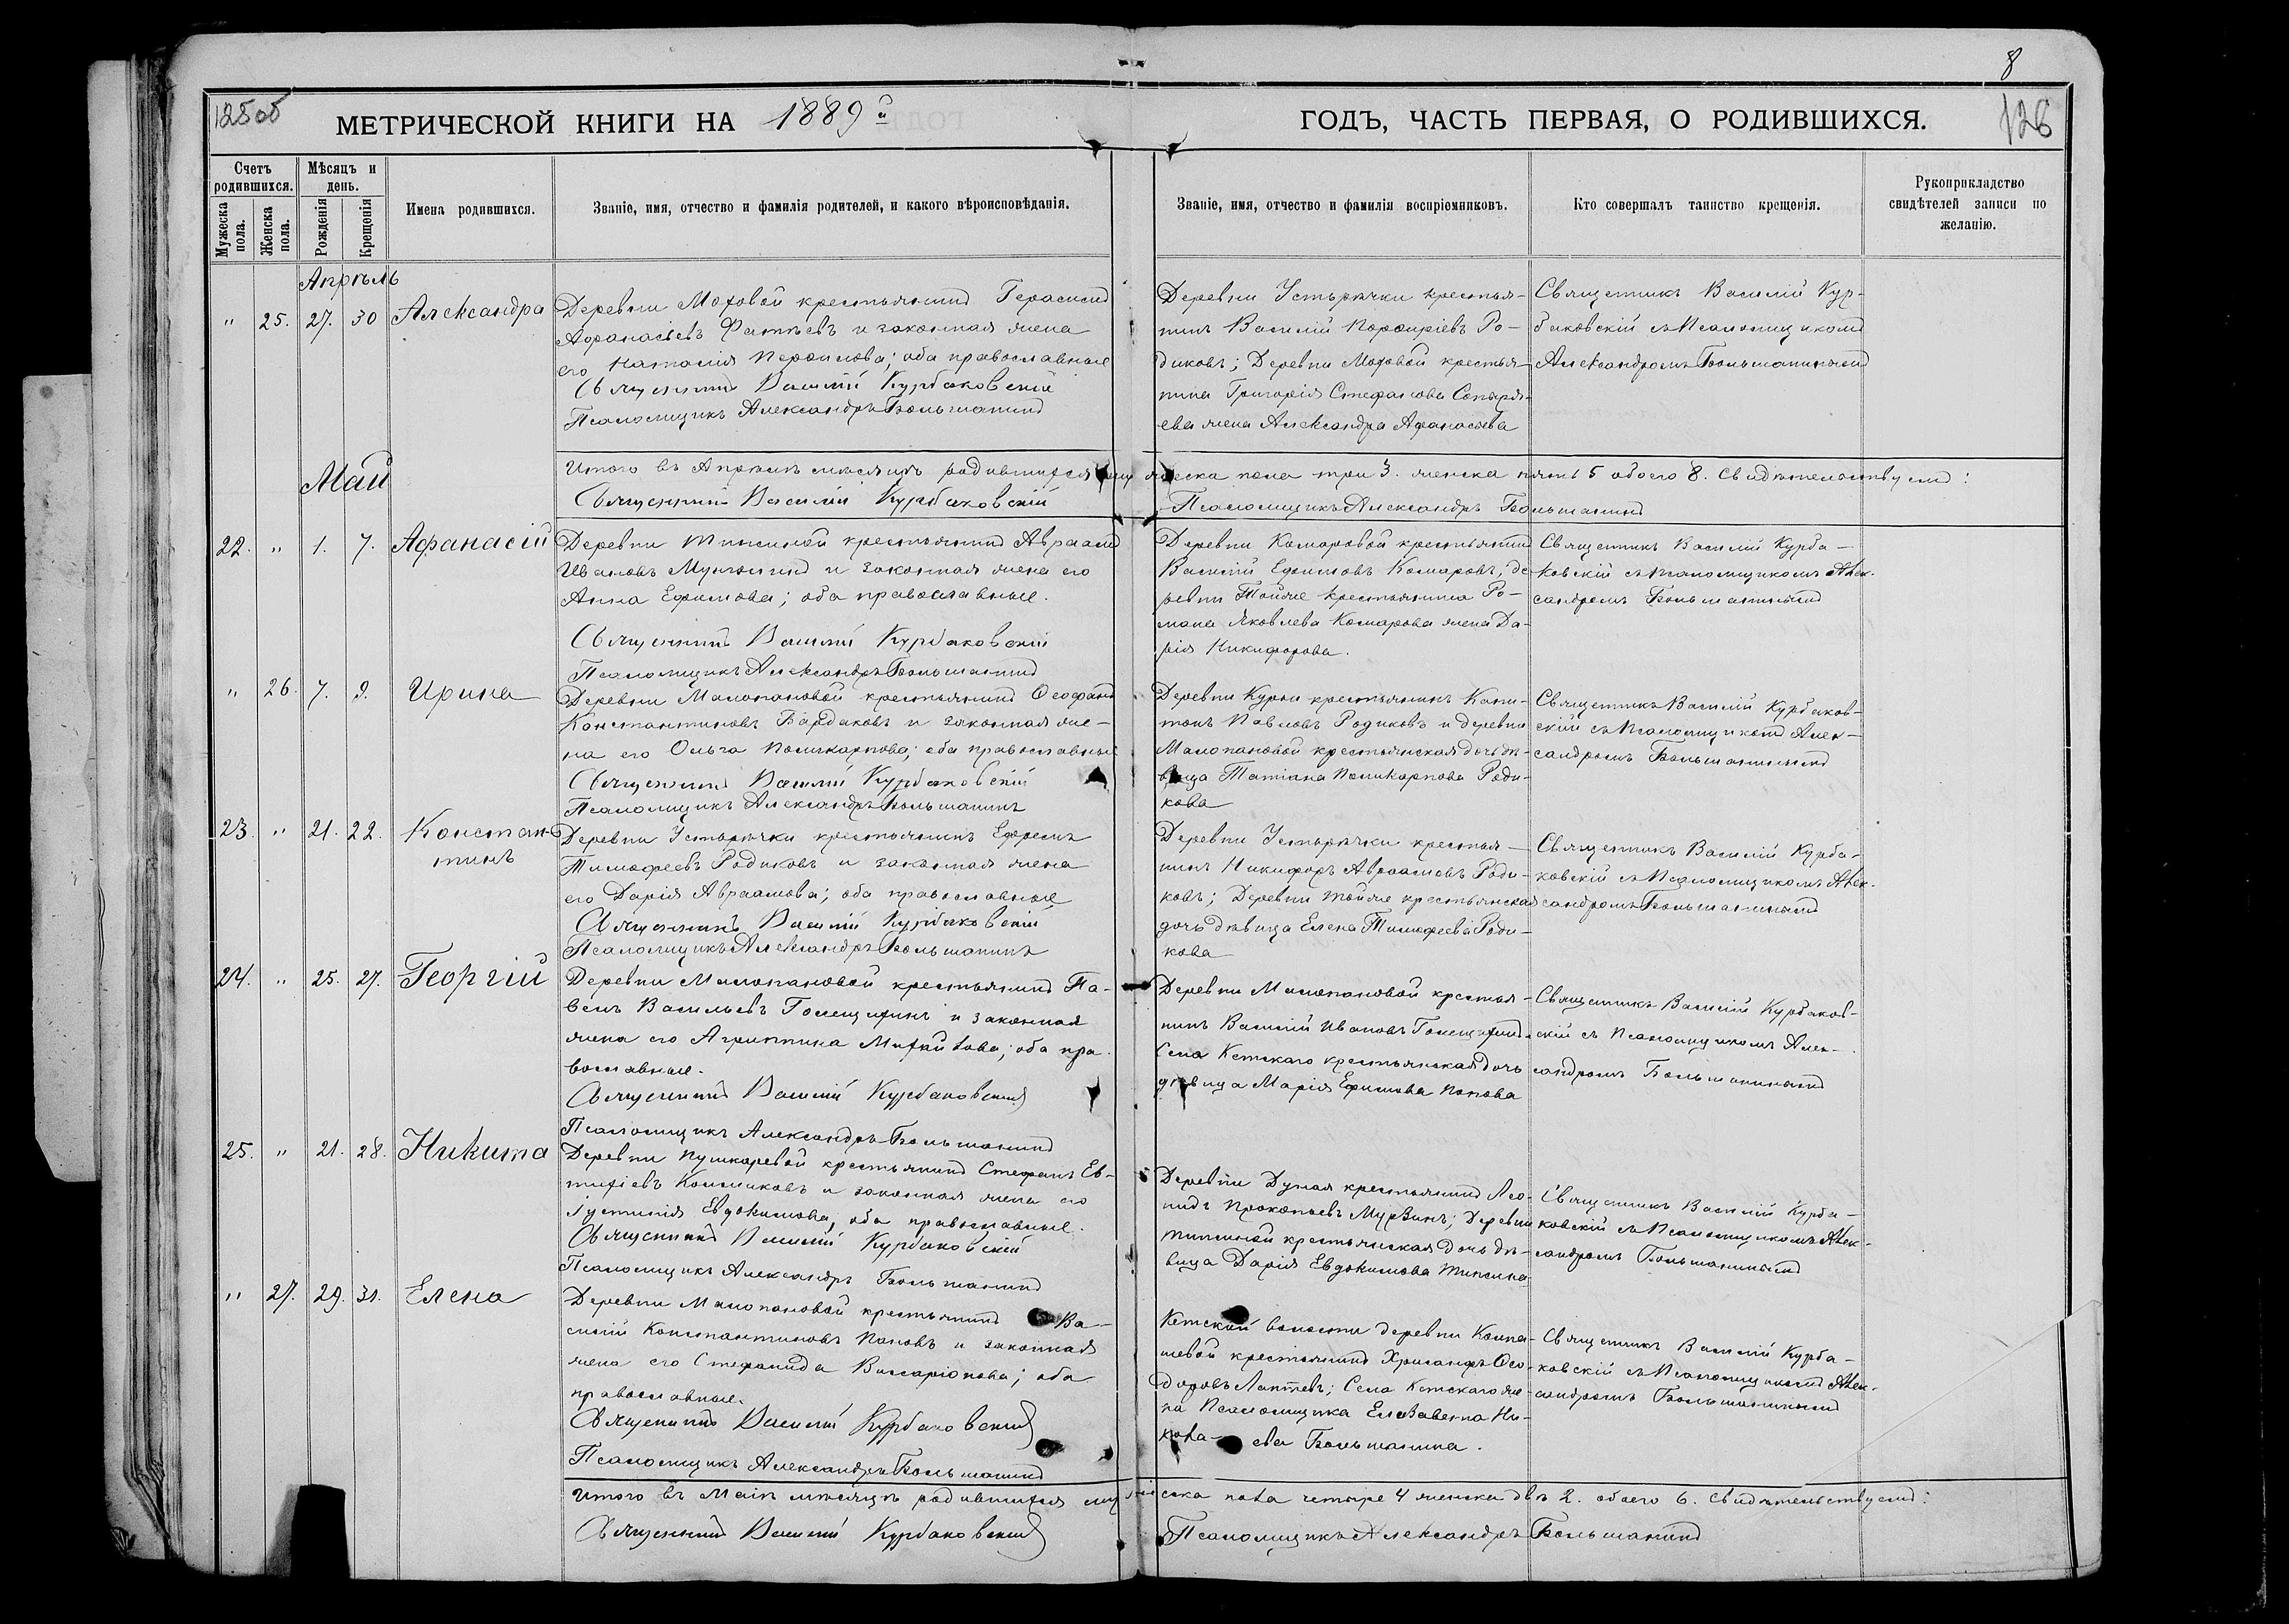 8
12505
126
МЕТРИЧЕСКОЙ КНИГИ НА 1889й
ГОДЪ, ЧАСТЬ ПЕРВАЯ, О РОДИВШИХСЯ.
Счетъ родившихся.
Мужеска пола.
Женска пола.
Мѣсяцъ и день.
Рожденія
Крещенія
Имена родившихся.
Званіе, имя, отчество и фамилія родителей, и какого вѣроисповѣданія.
Званіе, имя, отчество и фамилія воспріемниковъ.
Кто совершалъ таинство крещенія.
Рукоприкладство свидѣтелей записи по желанію.
Апрѣль
" 25. 27. 30 Александра
Деревни Моховой крестьянинъ Герасимъ
Афанасьевъ Фатѣевъ и законная жена
его Наталія Перфилова; оба православные
Священникъ Василій Курбаковскій
Псаломщикъ Александръ Большанинъ
Деревни Устьрѣчки крестья-
нинъ Василій Порфиріевъ Ро-
диковъ; Деревни Моховой крестья-
нина Григорія Стефанова
ева жена Александра Афанасьева
Священникъ Василій Кур-
баковскій съ Псаломщикомъ
Александромъ Большанинымъ
Итого въ Апрѣлѣ мѣсяцѣ родившихся мужеска пола три 3. женска пять 5 обоего 8. Свидѣтельствуемъ:
Священникъ Василій Курбаковскій
Псаломщикъ Александръ Большанинъ
Май
22. " 1. 7. Афанасій
Деревни Типсиной крестьянинъ Авраамъ
Ивановъ Мунгинъ и законная жена его
Анна Ефимова; оба православные.
Священникъ Василій Курбаковскій
Псаломщикъ Александръ Большанинъ
Деревни Комаровой крестьянинъ
Василій Ефимовъ Комаровъ; де-
ревни Тойже крестьянина Ро-
мана Яковлева Комарова жена Да-
рія Никифорова.
Священникъ Василій Курба-
ковскій съ Псаломщикомъ Алек-
сандромъ Большанинымъ
" 26. 7. 9. Ирина
Деревни Малопановой крестьянинъ Ѳеофанъ
Константиновъ Бардаковъ и законная же-
на его Ольга Поликарпова; оба православные
Священникъ Василій Курбаковскій
Псаломщикъ Александръ Большанинъ
Деревни Курьи крестьянинъ Капи-
тонъ Павловъ Родиковъ и деревни
Малопановой крестьянская дочь дѣ-
вица Татіана Поликарпова Роди-
кова
Священникъ Василій Курбаков-
скій съ Псаломщикомъ Алек-
сандромъ Большанинымъ
23. " 21. 22. Констан-
тинъ
Деревни Устьрѣчки крестьянинъ Ефремъ
Тимофеевъ Родиковъ и законная жена
его Дарія Авраамова; оба православные
Священникъ Василій Курбаковскій
Псаломщикъ Александръ Большанинъ
Деревни Устьрѣчки крестья-
нинъ Никифоръ Авраамовъ Роди-
ковъ; Деревни Тойже крестьянская
дочь дѣвица Елена Тимофеева Роди-
кова
Священникъ Василій Курба-
ковскій съ Псаломщикомъ Алек-
сандромъ Большанинымъ
24. " 25. 27. Георгій
Деревни Малопановой крестьянинъ Па-
велъ Васильевъ Голещихинъ и законная
жена его Агриппина Михайлова; оба пра-
вославные.
Священникъ Василій Курбаковскій
Псаломщикъ Александръ Большанинъ
Деревни Малопановой крестья-
нинъ Василій Ивановъ Голещихинъ.
Села Кетскаго крестьянская дочь
дѣвица Марія Ефимова Попова
Священникъ Василій Курбаков-
скій съ Псаломщикомъ Алек-
сандромъ Большанинымъ
25. " 21. 28. Никита
Деревни Пушкаревой крестьянинъ Стефанъ Ев-
тихіевъ Колмаковъ и законная жена его
Іустинія Евдокимова, оба православные.
Священникъ Василій Курбаковскій
Псаломщикъ Александръ Большанинъ
Деревни Дуная крестьянинъ Лео-
нидъ Прокопьевъ Мурзинъ; Деревни
Типсиной крестьянская дочь дѣ-
вица Дарія Евдокимова Типсина
Священникъ Василій Курба-
ковскій съ Псаломщикомъ Алек-
сандромъ Большанинымъ
" 27. 29. 31. Елена
Деревни Малопановой крестьянинъ Ва-
силій Константиновъ Поповъ и законная
жена его Стефанида Виссаріонова; оба
православные.
Священникъ Василій Курбаковскій
Псаломщикъ Александръ Большанинъ
Кетской волости деревни Колпа-
шевой крестьянинъ Хрисанфъ Ѳео-
доровъ Лаптевъ; Села Кетскаго же-
на Псаломщика Елизавета Ни-
кола- ева Большанина.
Священникъ Василій Курба-
ковскій съ Псаломщикомъ Алек-
сандромъ Большанинымъ
Итого въ Маѣ мѣсяцѣ родившихся мужеска пола четыре 4 женска двѣ 2. обоего 6. Свидѣтельствуемъ:
Священникъ Василій Курбаковскій
Псаломщикъ Александръ Большанинъ